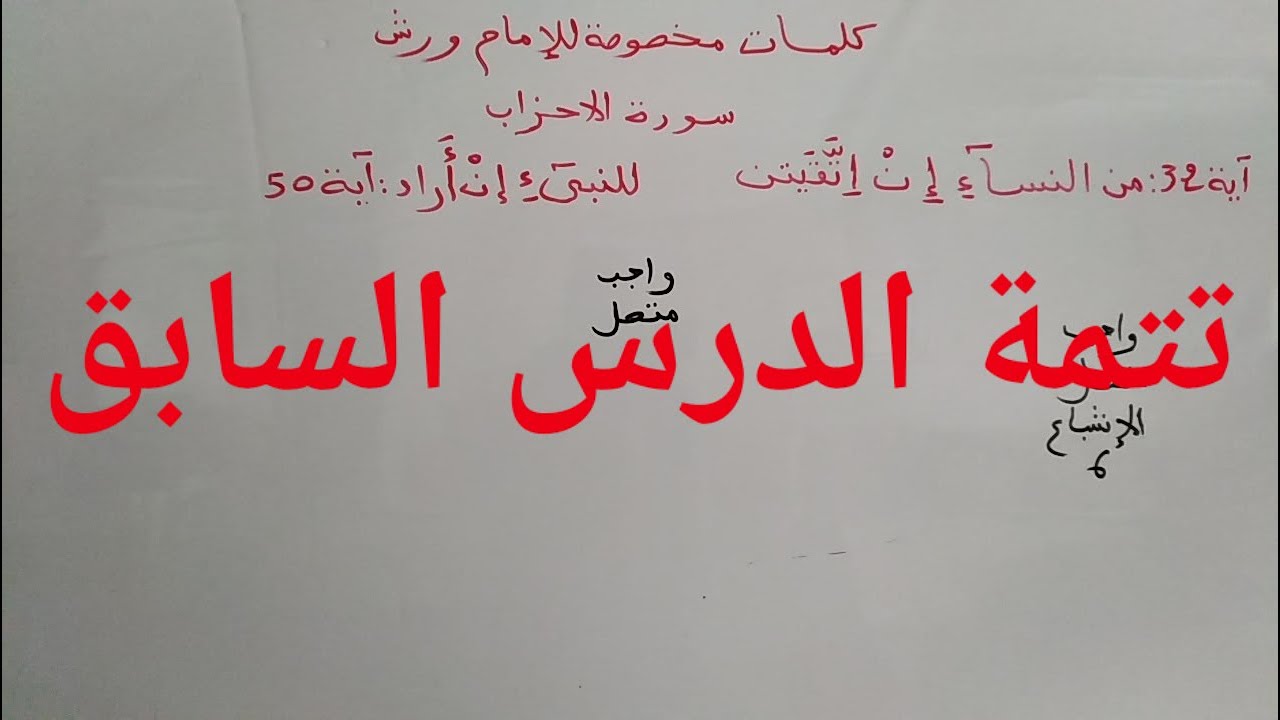 كلمات مخصوصة للإمام ورش
سورة الاحزاب
آية 32: من النسآءِ إِنْ اِتَّقَيتن للنبيٓءِ إنْ أَراد: آية 50
واجب
متصل
تتمة الدرس السابق
الإشباع
6